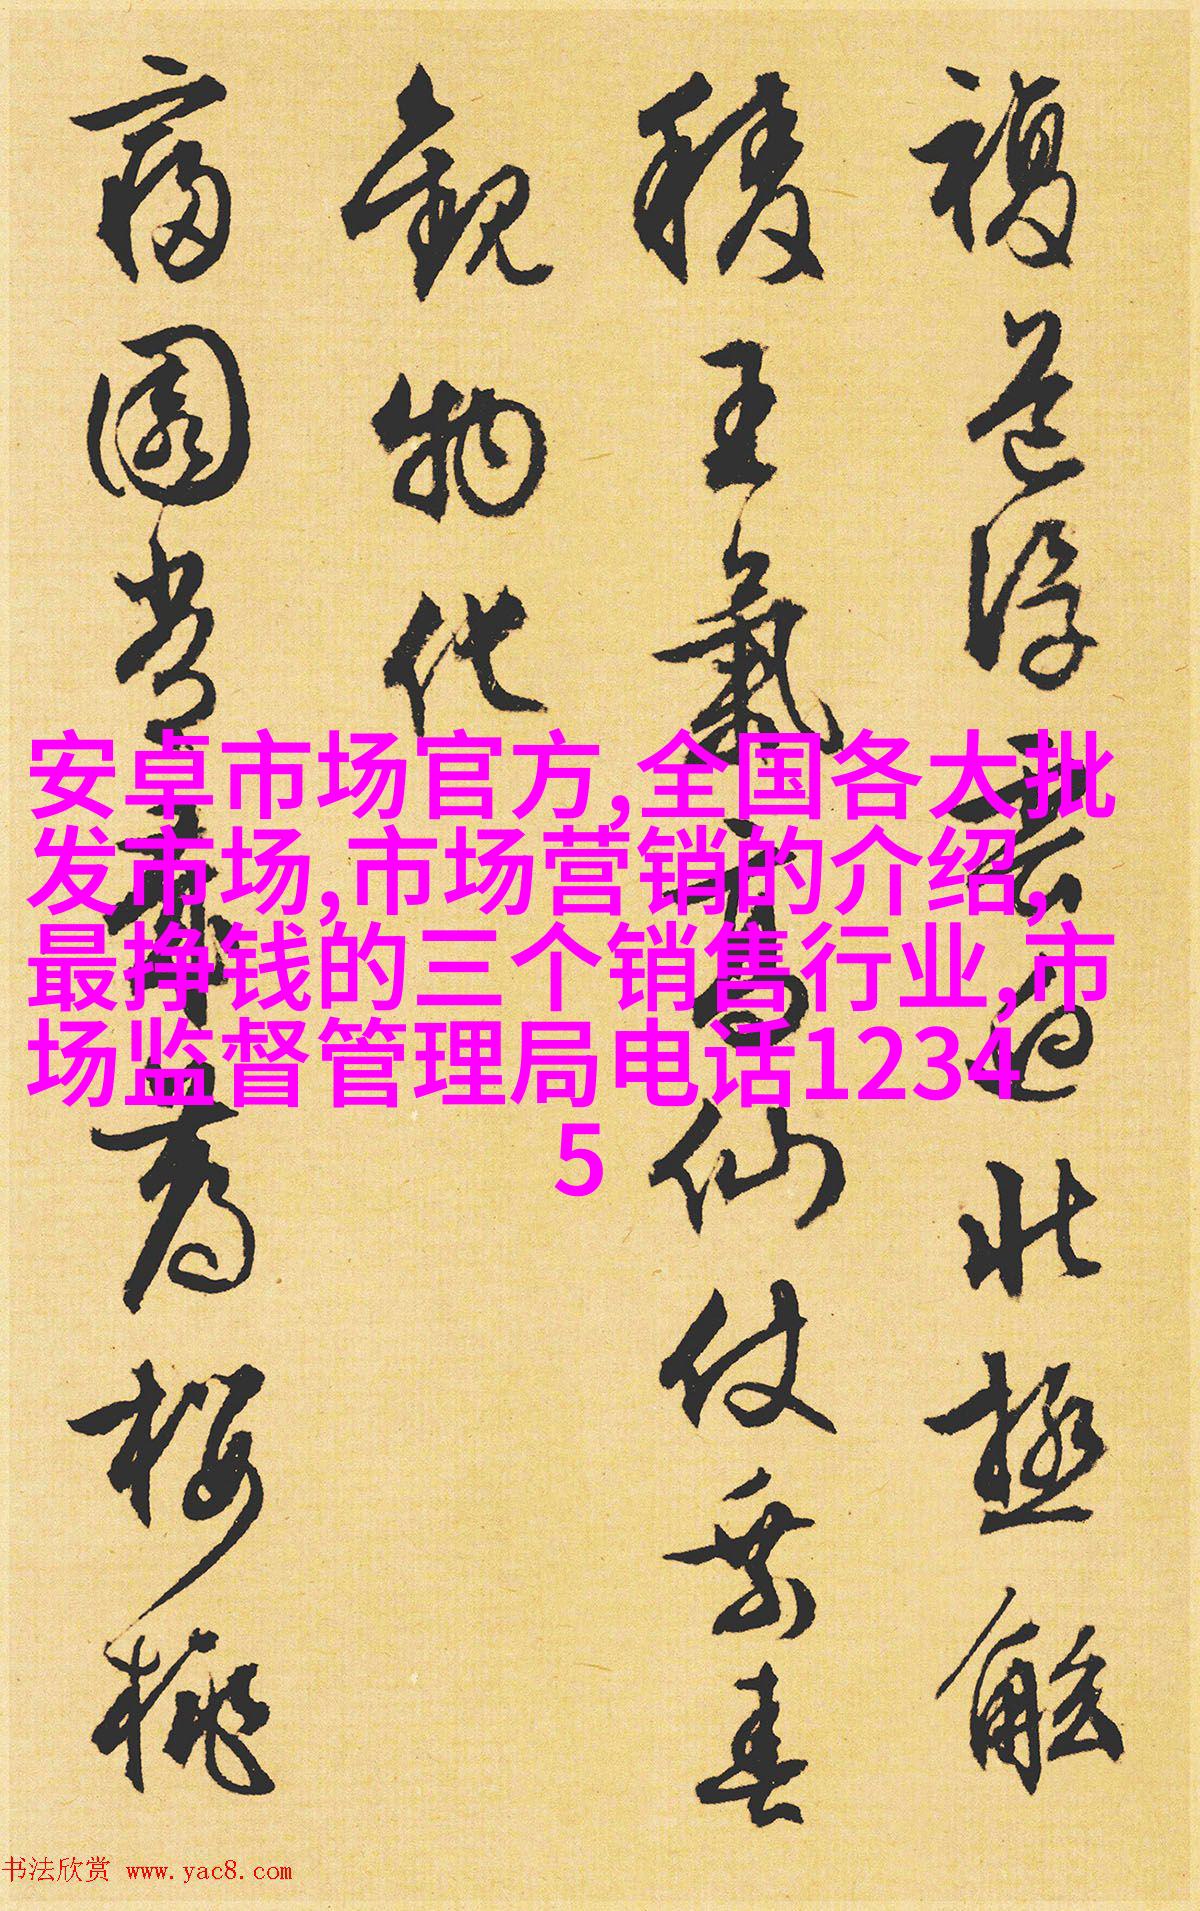 安卓市场官方,全国各大批
发市场,市场营销的介绍,
最挣钱的三个销售行业,市
场监督管理局电话1234
5
複道浮北極觚
稜王氣高仙仗乘春
觀物化
園為櫻桃
书法欣赏 www.yac8.com